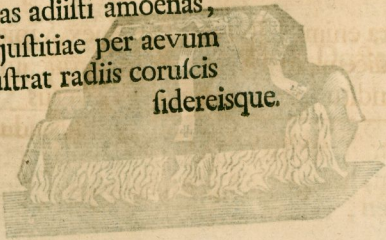 as adiiſti amoenas,
juſtitiae per aevum
ſtrat radiis coruſcis
ſidereisque.